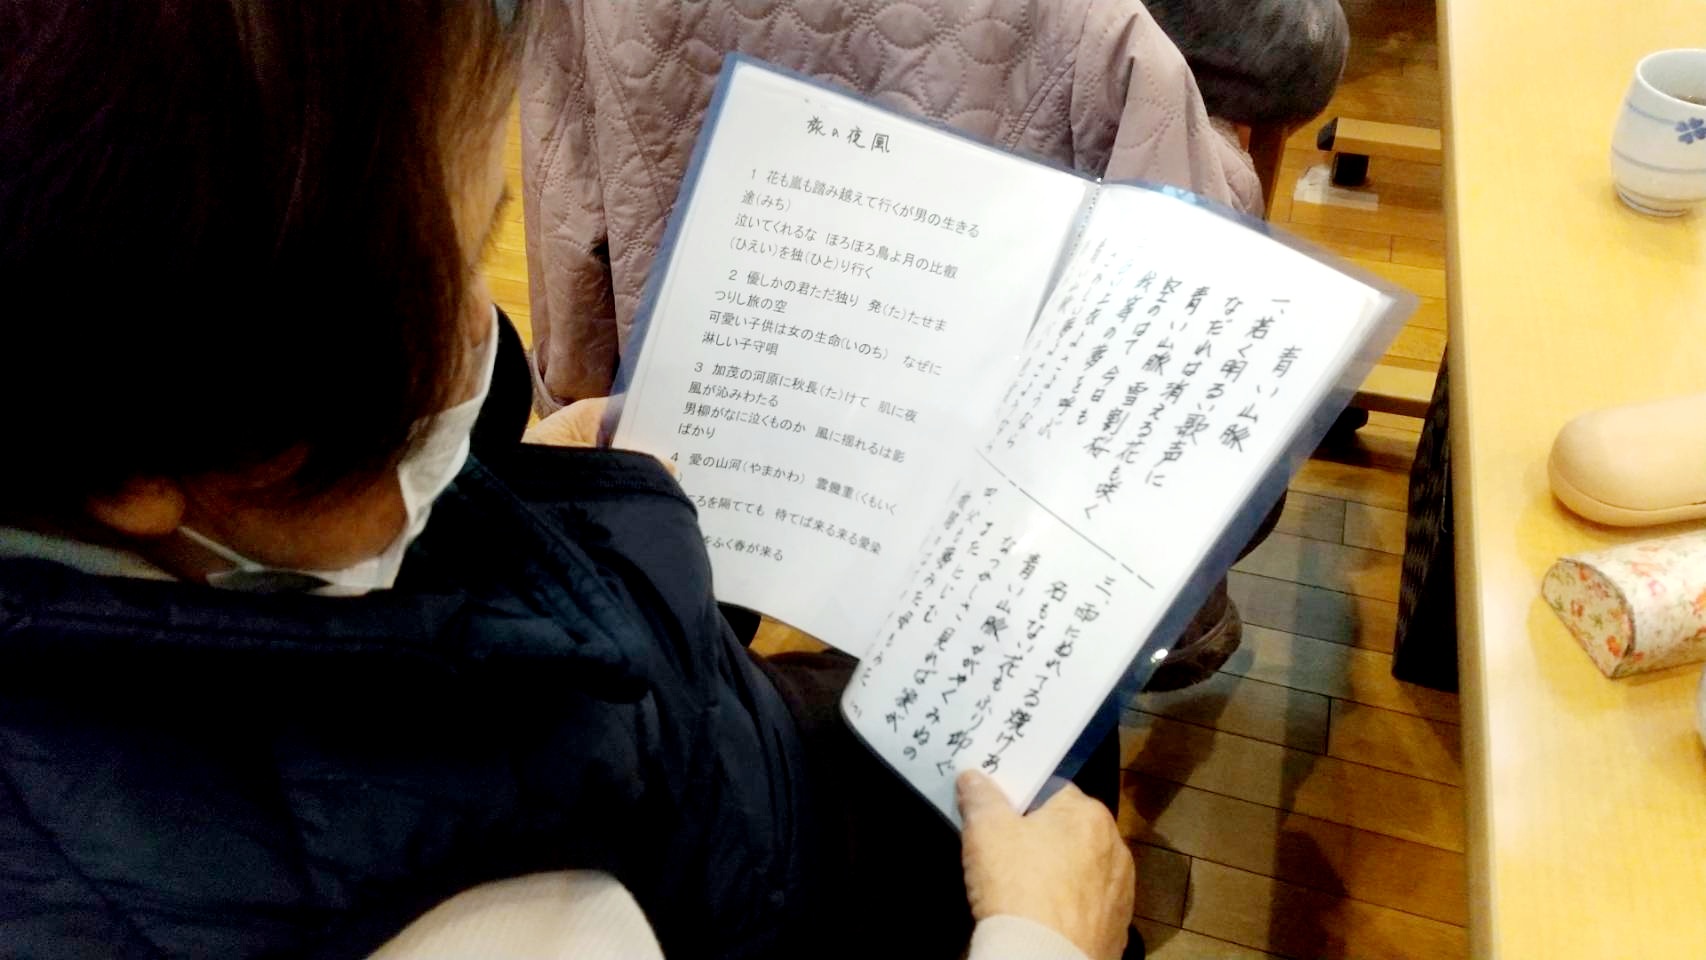 旅の夜風
1 花も嵐も踏み越えて行くが男の生きる
途(みち)
泣いてくれるな ほろほろ鳥よ月の比叡
(ひえい)を独(ひと)り行く
2 優しかの君ただ独り 発(た)たせま
つりし旅の空
可愛い子供は女の生命(いのち) なぜに
淋しい子守唄
3 加茂の河原に秋長(た)けて 肌に夜
風が沁みわたる
男柳がなに泣くものか 風に揺れるは影
ばかり
4 愛の山河(やまかわ) 雲幾重(くもいく
)
ころを隔てても 待てば来る来る愛染
をふく春が来る
青い山脈
一、若く明るい歌声に
なだれは消える花も咲く
青い山脈 雪割桜
空のはて 今日も
我等の夢を呼ぶ
三、雨にぬれてる焼けあ
名もない花もふり仰ぐ
青い山脈 かがやくみねの
なつかしさ 見れば涙が
四、父も夢みた母もみた